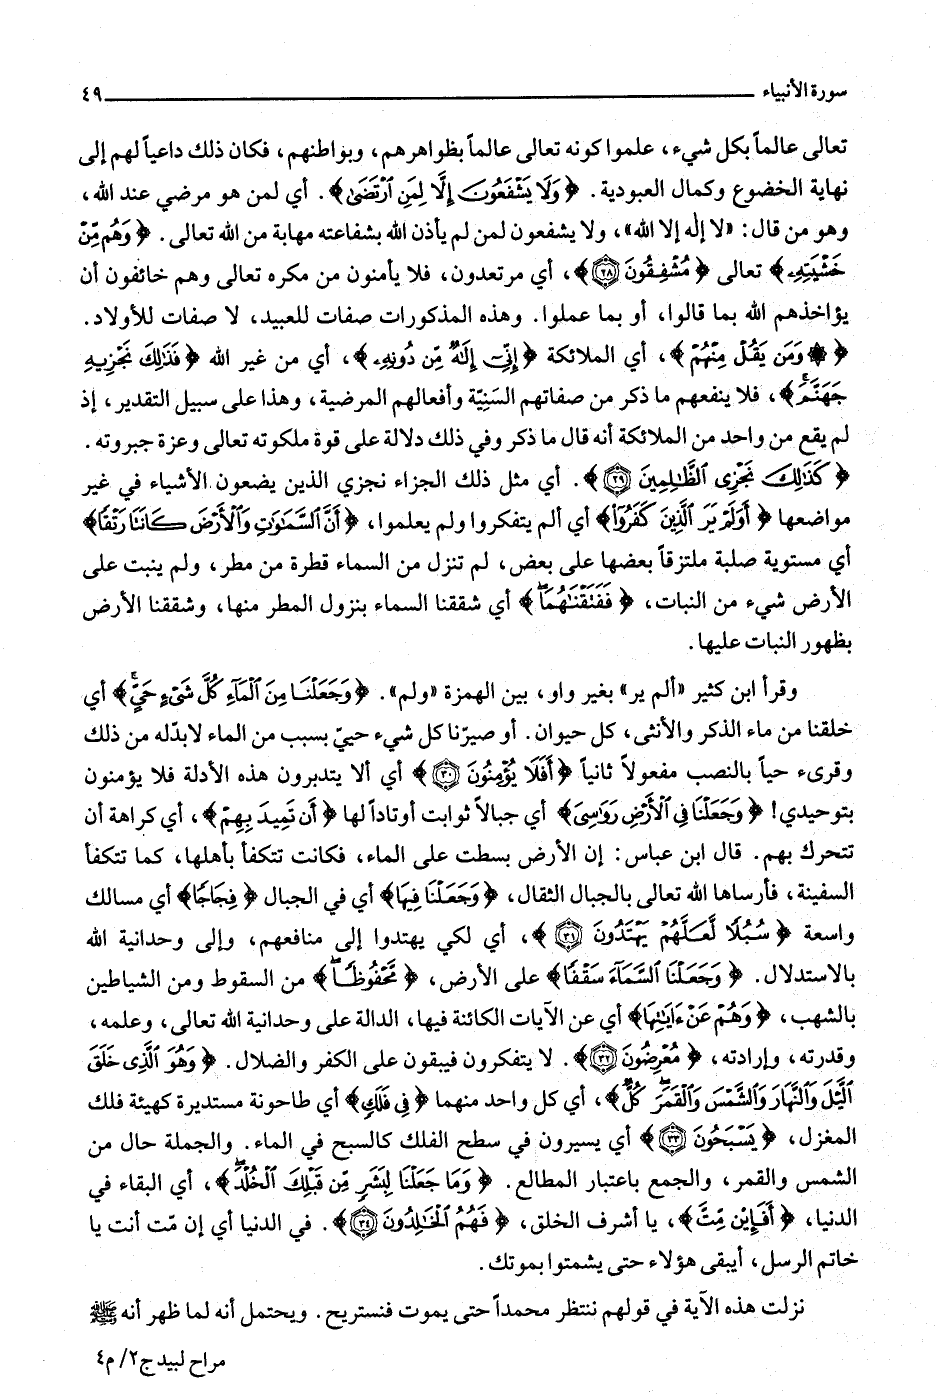 سورة الأنبياء ٤٩
تعالى عالماً بكل شيء، علموا كونه تعالى عالماً بظواهرهم، وبواطنهم، فكان ذلك داعياً لهم إلى
نهاية الخضوع وكمال العبودية. ﴿وَلَا يَشْفَعُونَ إِلَّا لِمَنِ ٱرْتَضَىٰ﴾. أي لمن هو مرضي عند الله،
وهو من قال: «لا إله إلا الله»، ولا يشفعون لمن لم يأذن الله بشفاعته مهابة من الله تعالى. ﴿وَهُم مِّنْ
خَشْيَتِهِۦ﴾ تعالى ﴿مُشْفِقُونَ ٢٨﴾، أي مرتعدون، فلا يأمنون من مكره تعالى وهم خائفون أن
يؤاخذهم الله بما قالوا، أو بما عملوا. وهذه المذكورات صفات للعبيد، لا صفات للأولاد.
﴿۞ وَمَن يَقُلْ مِنْهُمْ﴾، أي الملائكة ﴿إِنِّىٓ إِلَٰهٌ مِّن دُونِهِۦ﴾، أي من غير الله ﴿فَذَٰلِكَ نَجْزِيهِ
جَهَنَّمَۚ﴾، فلا ينفعهم ما ذكر من صفاتهم السَنِيّة وأفعالهم المرضية، وهذا على سبيل التقدير، إذ
لم يقع من واحد من الملائكة أنه قال ما ذكر وفي ذلك دلالة على قوة ملكوته تعالى وعزة جبروته.
﴿كَذَٰلِكَ نَجْزِى ٱلظَّٰلِمِينَ ٢٩﴾. أي مثل ذلك الجزاء نجزي الذين يضعون الأشياء في غير
مواضعها ﴿أَوَلَمْ يَرَ ٱلَّذِينَ كَفَرُوٓا۟﴾ أي ألم يتفكروا ولم يعلموا، ﴿أَنَّ ٱلسَّمَٰوَٰتِ وَٱلْأَرْضَ كَانَتَا رَتْقًا﴾
أي مستوية صلبة ملتزقاً بعضها على بعض، لم تنزل من السماء قطرة من مطر، ولم ينبت على
الأرض شيء من النبات، ﴿فَفَتَقْنَٰهُمَاۖ﴾ أي شققنا السماء بنزول المطر منها، وشققنا الأرض
بظهور النبات عليها.
وقرأ ابن كثير «ألم ير» بغير واو، بين الهمزة «ولم». ﴿وَجَعَلْنَا مِنَ ٱلْمَآءِ كُلَّ شَىْءٍ حَىٍّۚ﴾ أي
خلقنا من ماء الذكر والأنثى، كل حيوان. أو صيرّنا كل شيء حييّ بسبب من الماء لابدّله من ذلك
وقرىء حياً بالنصب مفعولاً ثانياً ﴿أَفَلَا يُؤْمِنُونَ ٣٠﴾ أي ألا يتدبرون هذه الأدلة فلا يؤمنون
بتوحيدي! ﴿وَجَعَلْنَا فِى ٱلْأَرْضِ رَوَٰسِىَ﴾ أي جبالاً ثوابت أوتاداً لها ﴿أَن تَمِيدَ بِهِمْ﴾، أي كراهة أن
تتحرك بهم. قال ابن عباس: إن الأرض بسطت على الماء، فكانت تتكفأ بأهلها، كما تتكفأ
السفينة، فأرساها الله تعالى بالجبال الثقال، ﴿وَجَعَلْنَا فِيهَا﴾ أي في الجبال ﴿فِجَاجًا﴾ أي مسالك
واسعة ﴿سُبُلًا لَّعَلَّهُمْ يَهْتَدُونَ ٣١﴾، أي لكي يهتدوا إلى منافعهم، وإلى وحدانية الله
بالاستدلال. ﴿وَجَعَلْنَا ٱلسَّمَآءَ سَقْفًا﴾ على الأرض، ﴿مَّحْفُوظًاۖ﴾ من السقوط ومن الشياطين
بالشهب، ﴿وَهُمْ عَنْ ءَايَٰتِهَا﴾ أي عن الآيات الكائنة فيها، الدالة على وحدانية الله تعالى، وعلمه،
وقدرته، وإرادته، ﴿مُعْرِضُونَ ٣٢﴾. لا يتفكرون فيبقون على الكفر والضلال. ﴿وَهُوَ ٱلَّذِى خَلَقَ
ٱلَّيْلَ وَٱلنَّهَارَ وَٱلشَّمْسَ وَٱلْقَمَرَۖ كُلٌّ﴾، أي كل واحد منهما ﴿فِى فَلَكٍ﴾ أي طاحونة مستديرة كهيئة فلك
المغزل، ﴿يَسْبَحُونَ ٣٣﴾ أي يسيرون في سطح الفلك كالسبح في الماء. والجملة حال من
الشمس والقمر، والجمع باعتبار المطالع. ﴿وَمَا جَعَلْنَا لِبَشَرٍ مِّن قَبْلِكَ ٱلْخُلْدَۖ﴾، أي البقاء في
الدنيا، ﴿أَفَإِي۟ن مِّتَّ﴾، يا أشرف الخلق، ﴿فَهُمُ ٱلْخَٰلِدُونَ ٣٤﴾. في الدنيا أي إن مّت أنت يا
خاتم الرسل، أيبقى هؤلاء حتى يشمتوا بموتك.
نزلت هذه الآية في قولهم ننتظر محمداً حتى يموت فنستريح. ويحتمل أنه لما ظهر أنه ﷺ
مراح لبيد ج٢/ م٤